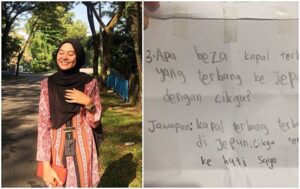 3. Apa beza kapal terb
yang terbang ke Jep
dengan cikgu?
Jawapan: kapal terbang ter
di Jepun, Cikgu te
ke hati saya